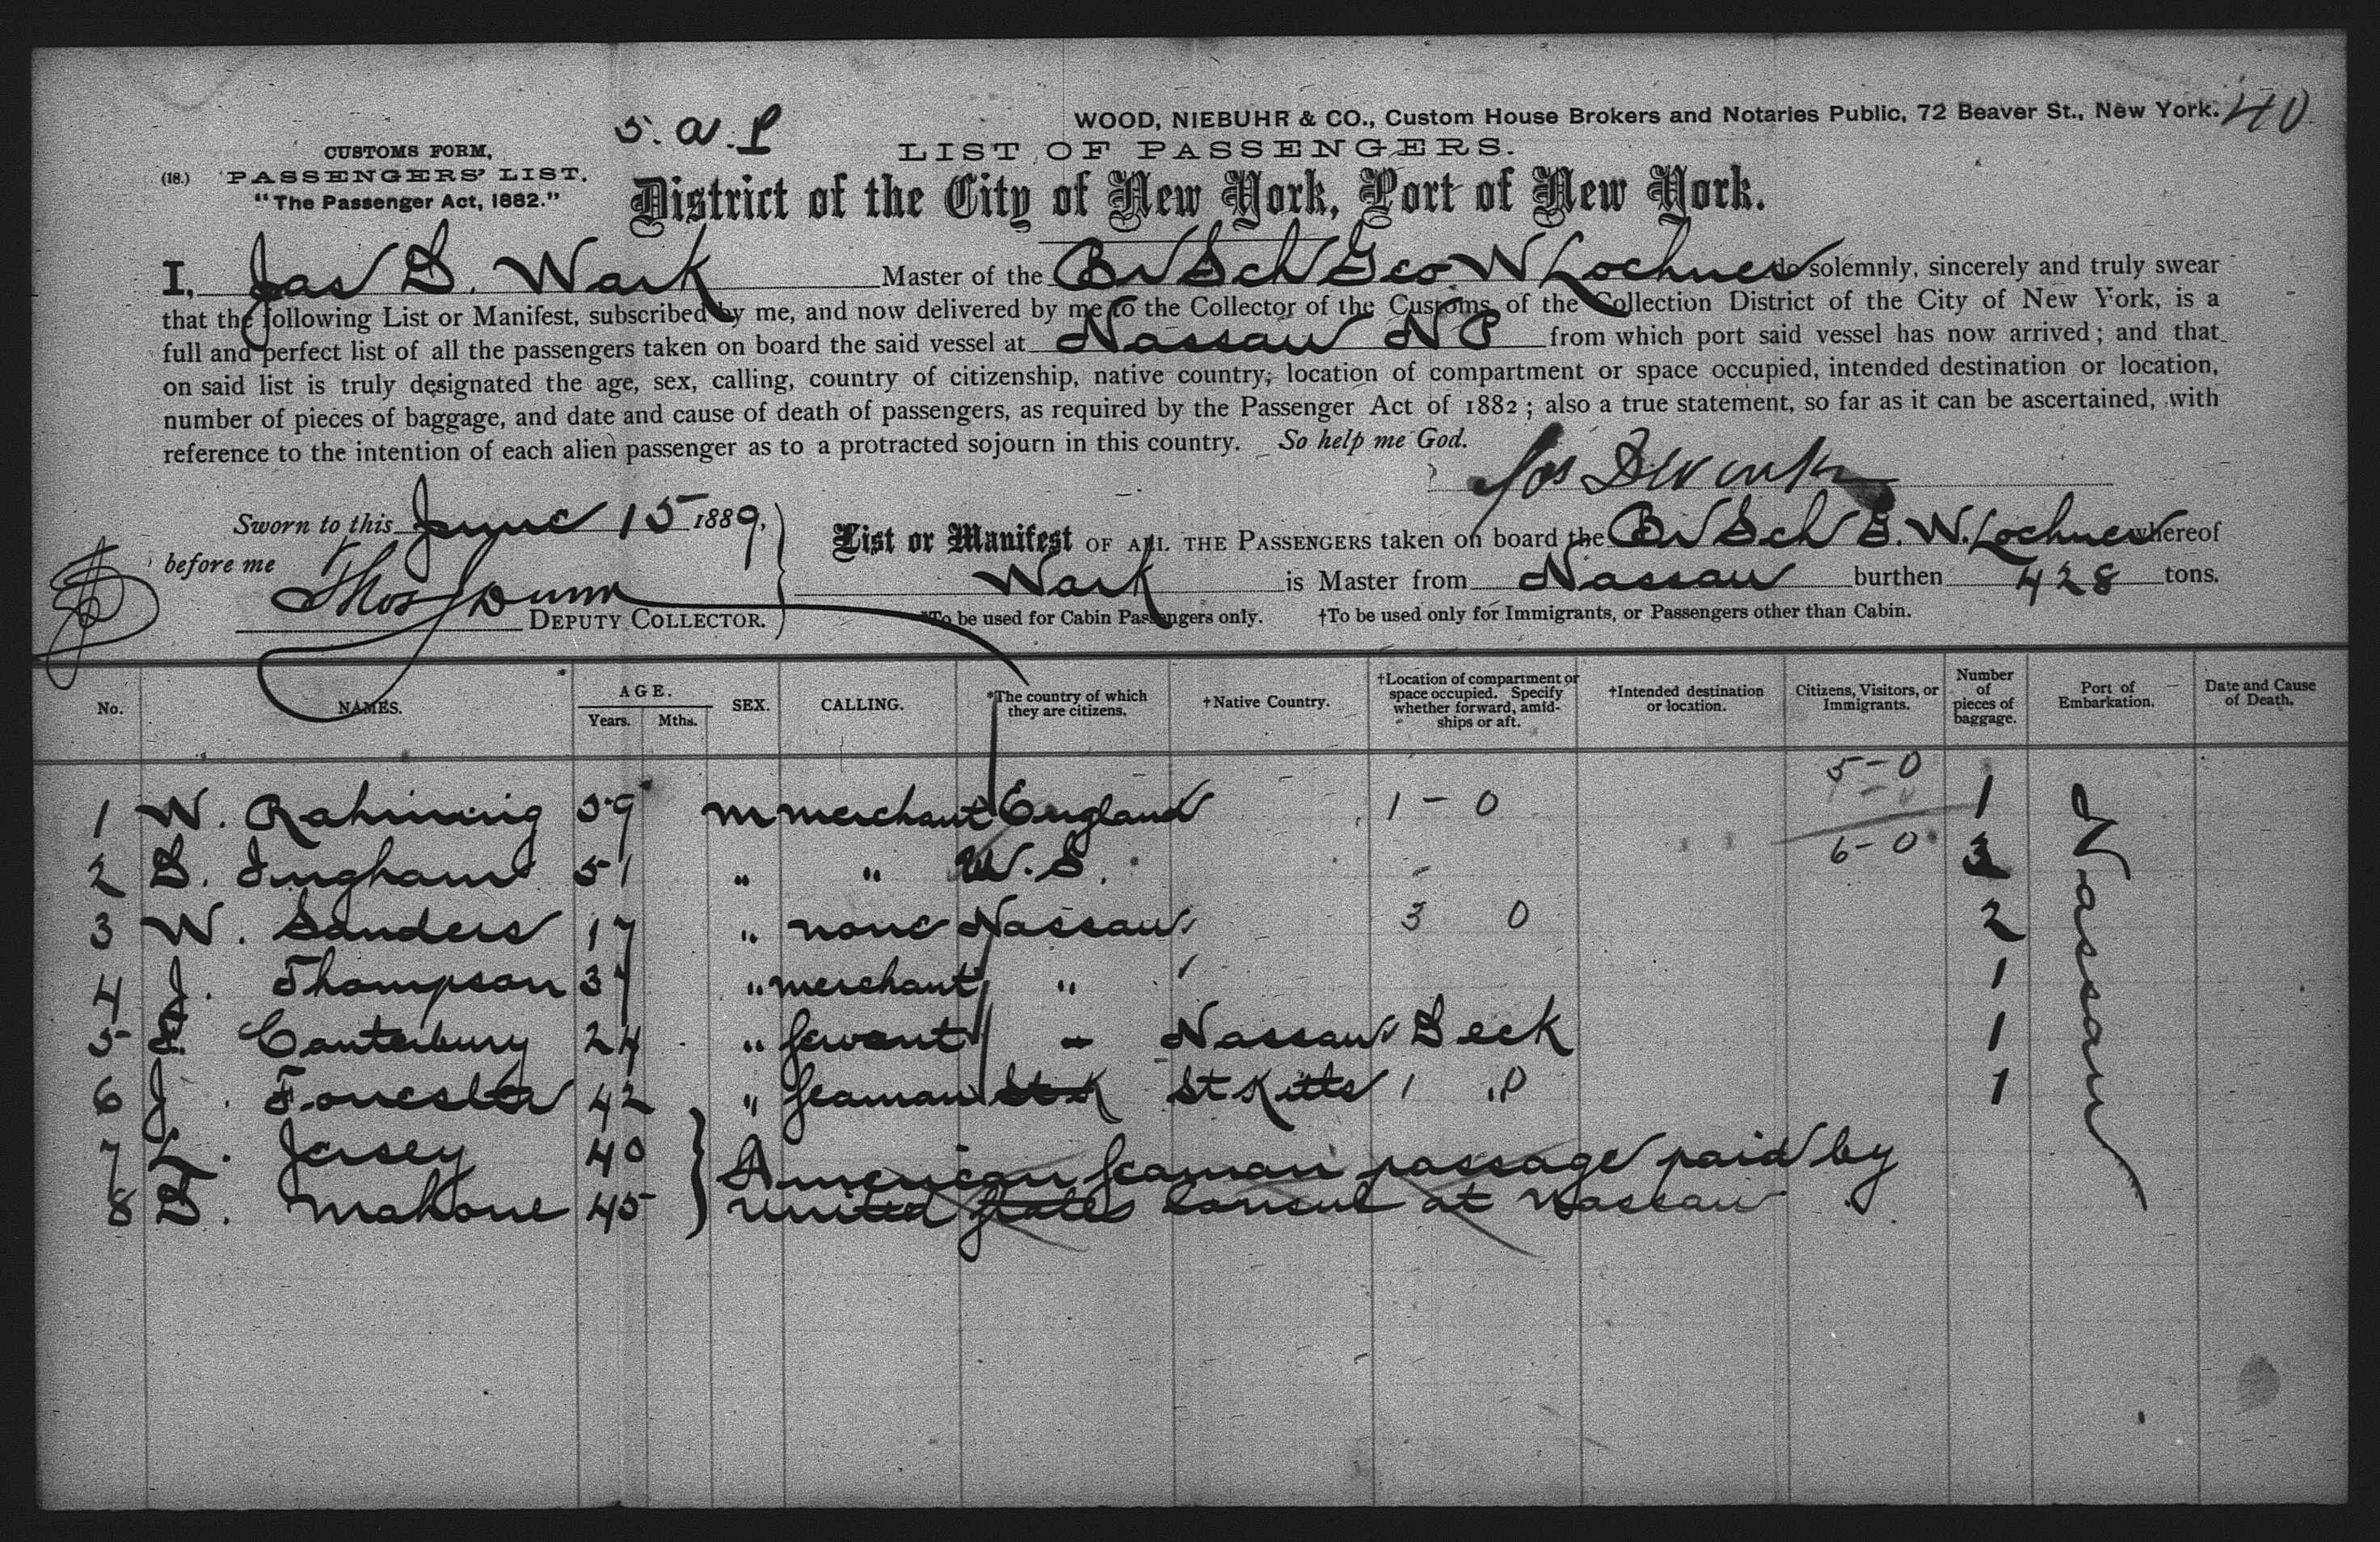 WOOD, NIEBUHR & CO., Custom House Brokers and Notaries Public, 72 Beaver St., New York. 40
5. a. P
CUSTOMS FORM,
(18.) PASSENGERS' LIST.
"The Passenger Act, 1882."
LIST OF PASSENGERS.
District of the City of New York, Port of New York.
I, Jas D. Wark Master of the Br Sch Geo W Lochner do solemnly, sincerely and truly swear
that the following List or Manifest, subscribed by me, and now delivered by me to the Collector of the Customs of the Collection District of the City of New York, is a
full and perfect list of all the passengers taken on board the said vessel at Nassau N P from which port said vessel has now arrived; and that
on said list is truly designated the age, sex, calling, country of citizenship, native country, location of compartment or space occupied, intended destination or location,
number of pieces of baggage, and date and cause of death of passengers, as required by the Passenger Act of 1882; also a true statement, so far as it can be ascertained, with
reference to the intention of each alien passenger as to a protracted sojourn in this country. So help me God.
Jas D Wark
Sworn to this June 15 1889,
before me
Thos J Dunn
DEPUTY COLLECTOR.
List or Manifest OF ALL THE PASSENGERS taken on board the Br Sch G. W. Lochner whereof
Wark is Master from Nassau burthen 428 tons.
*To be used for Cabin Passengers only. †To be used only for Immigrants, or Passengers other than Cabin.
No. NAMES. AGE. Years. Mths. SEX. CALLING. *The country of which they are citizens. †Native Country. †Location of compartment or space occupied. Specify whether forward, amidships or aft. †Intended destination or location. Citizens, Visitors, or Immigrants. Number of pieces of baggage. Port of Embarkation. Date and Cause of Death.
5-0
1 W. Rahming 59 m merchant England 1-0 1 Nassau
6-0
2 D. Ingham 51 " " U.S. 3
3 W. Sanders 17 " none Nassau 3 0 2
4 J. Thompson 37 " merchant " 1
5 Canterbury 24 " servant " Nassau Deck 1
6 J. Forrester 42 " seaman St K St Kitts 1 0 1
7 L. Jersey 40 American seaman passage paid by
8 D. Mahone 45 united states consul at Nassau